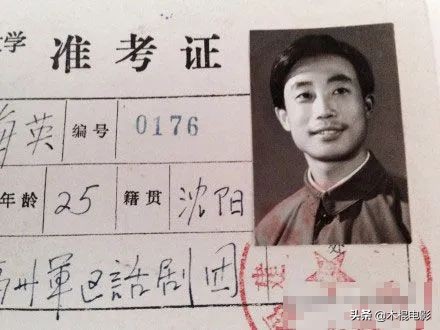 学 准考证
海英 编号 0176
年龄 25 籍贯 沈阳
州軍区話剧团
头条 @木棍电影